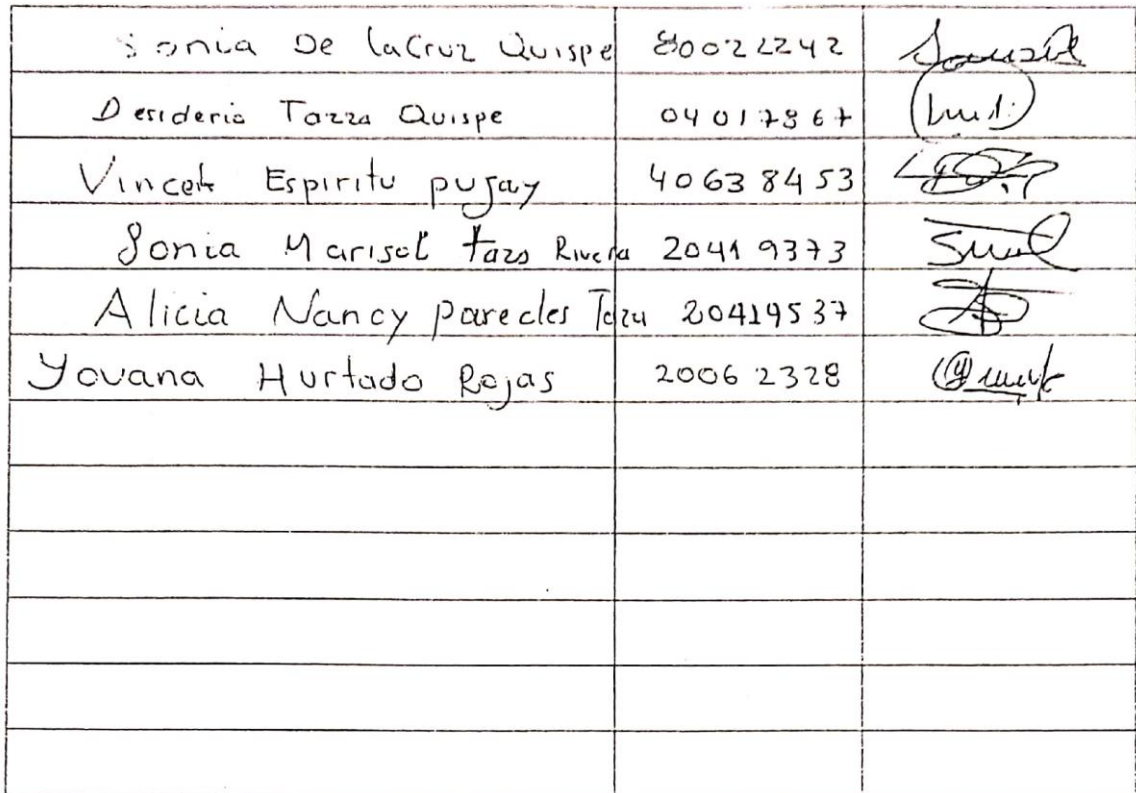 Sonia De la Cruz Quispe 80022242
Desiderio Tazza Quispe 04017867
Espiritu pujay 40638453
Sonia Marisol tazo Rivera 20419373
Alicia Nancy paredes 20419537
Yovana Hurtado Rojas 20062328